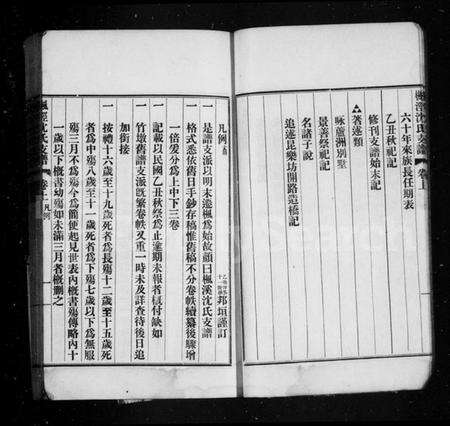 楓溪沈氏支譜 卷上
六十年來族長任期表
乙丑秋祀記
修刊支譜始末記
著述類
詠蘆洲別墅
景善祭祀記
名諸子說
追述昆樂坊開路造橋記
凡例
邦垣謹訂
一 是譜支派以明末遷楓為始故顏曰楓溪沈氏支譜
一 格式悉依舊日手鈔存稿惟舊稿不分卷帙續纂後驟增
一倍爰分為上中下三卷
一 記載以民國乙丑秋祭為止逾期未報者槪付缺如
一 竹墩舊譜支派旣繁卷帙又重一時未及詳查待後日追
加銜接
一 按禮十六歲至十九歲死者為長殤十二歲至十五歲死
者為中殤八歲至十一歲死者為下殤七歲以下為無服
殤三月不為殤今為簡便起見世表內槪書殤傳略內十
一歲以下槪書幼殤如未滿三月者槪刪之
楓溪沈氏支譜 卷上 凡例